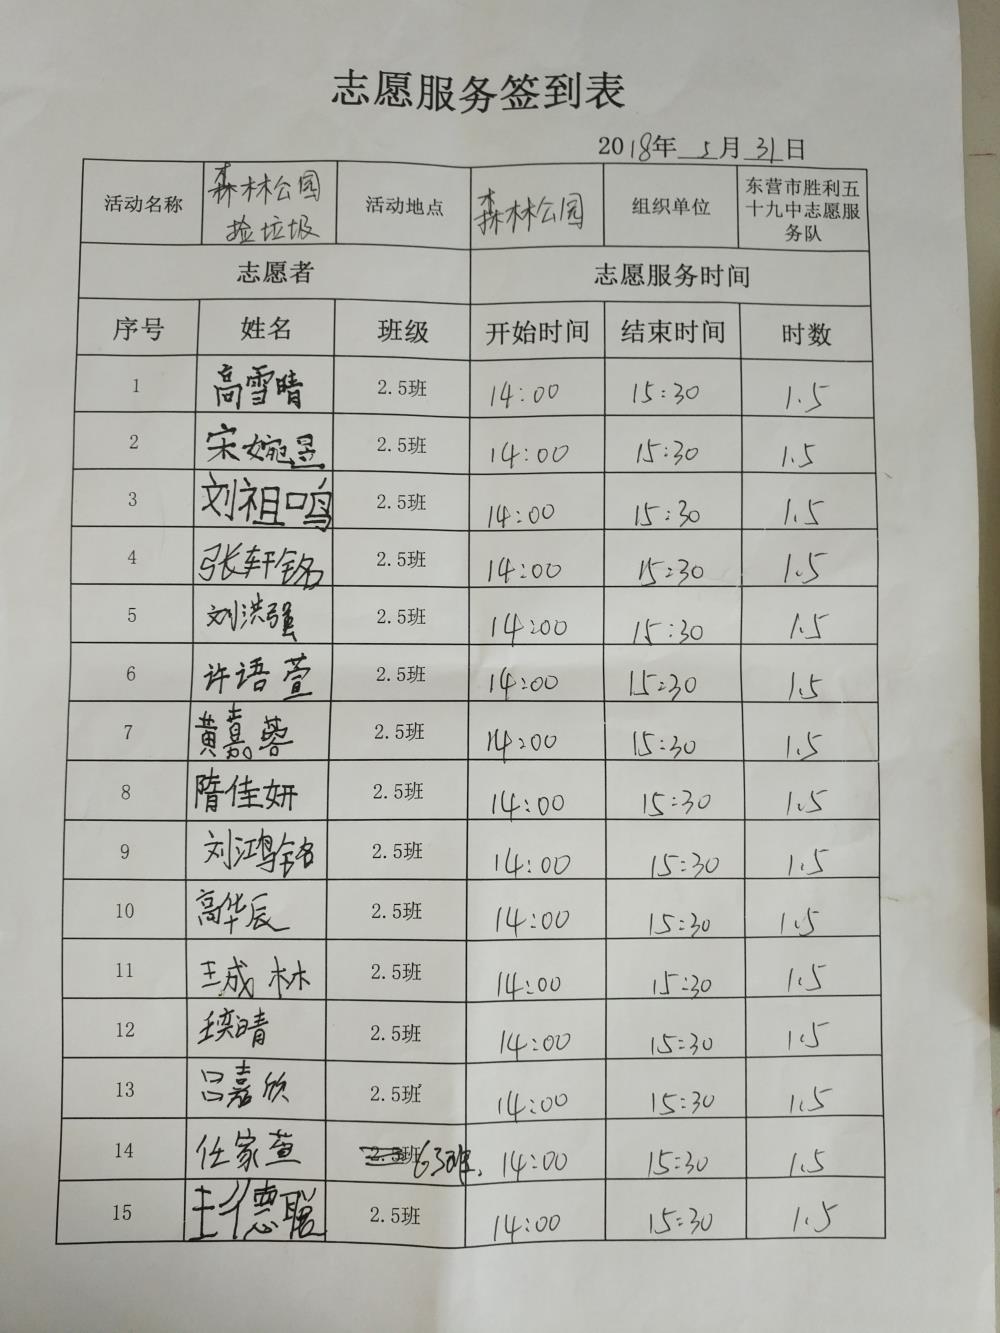 志愿服务签到表
2018年 5月 31日
活动名称 森林公园捡垃圾 活动地点 森林公园 组织单位 东营市胜利五十九中志愿服务队
志愿者 志愿服务时间
序号 姓名 班级 开始时间 结束时间 时数
1 高雪晴 2.5班 14:00 15:30 1.5
2 宋婉昱 2.5班 14:00 15:30 1.5
3 刘祖鸣 2.5班 14:00 15:30 1.5
4 张轩铭 2.5班 14:00 15:30 1.5
5 刘洪强 2.5班 14:00 15:30 1.5
6 许语萱 2.5班 14:00 15:30 1.5
7 黄嘉蓉 2.5班 14:00 15:30 1.5
8 隋佳妍 2.5班 14:00 15:30 1.5
9 刘鸿铭 2.5班 14:00 15:30 1.5
10 高华辰 2.5班 14:00 15:30 1.5
11 王成林 2.5班 14:00 15:30 1.5
12 王奕晴 2.5班 14:00 15:30 1.5
13 吕嘉欣 2.5班 14:00 15:30 1.5
14 任家萱 6.3班 14:00 15:30 1.5
15 王德聪 2.5班 14:00 15:30 1.5